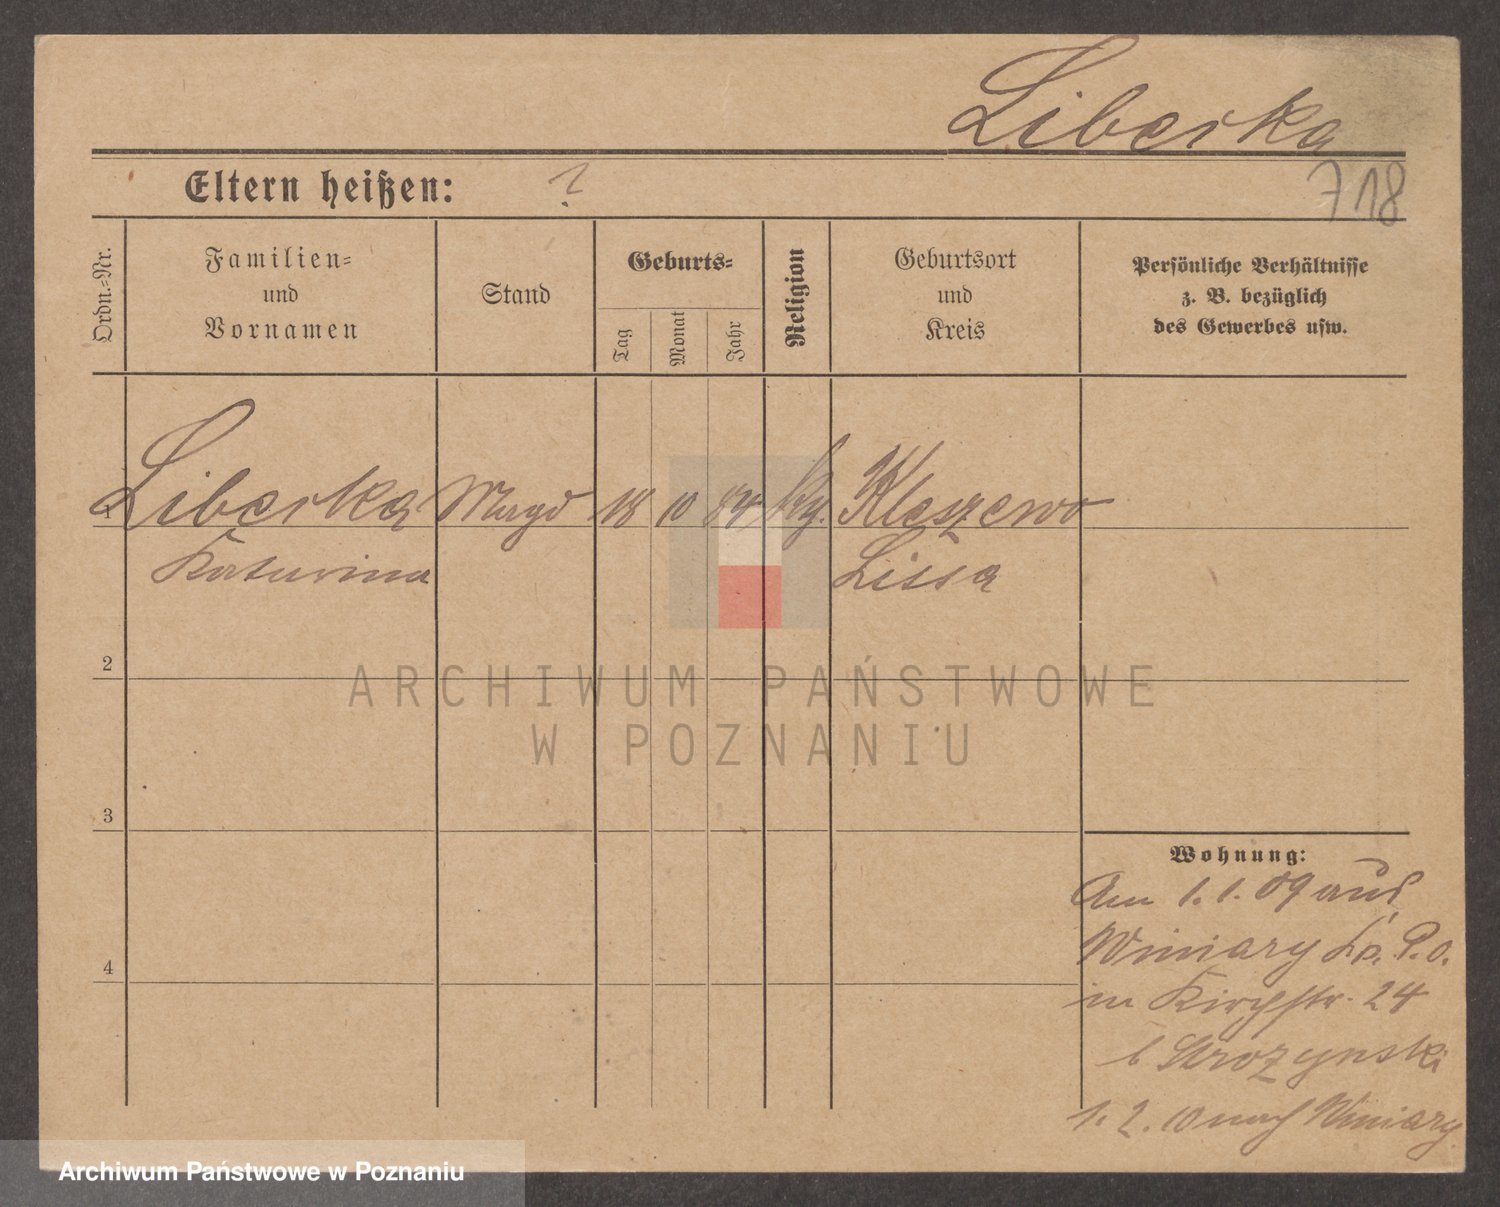 Liberka
Eltern heißen: ?
718
Ordn.-Nr.
Familien-
und
Vornamen
Stand
Geburts-
Tag
Monat
Jahr
Religion
Geburtsort
und
Kreis
Persönliche Verhältnisse
z. B. bezüglich
des Gewerbes usw.
1
Liberka Magd 18 10 84 Kleszewo
Katarina Lissa
2
ARCHIWUM PAŃSTWOWE
W POZNANIU
3
Wohnung:
Am 1.1.09 aus
Winiary P.O.
4
in Kirchstr. 24
b Strozynski
1.2.10 nach Winiary
Archiwum Państwowe w Poznaniu